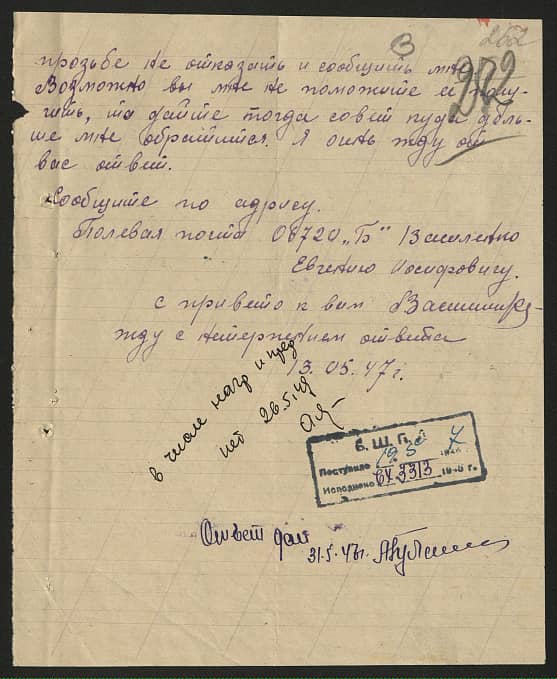 3
262
272
прозьбе не отказать и сообщить мне
Возможно вы мне не поможите ее полу-
чить, то дайте тогда совет куда даль-
ше мне обратится. Я очень жду от
вас ответ.
Сообщите по адресу.
Полевая почта 06720 „Б" Василенко
Евгению Иосифовичу.
с привето к вам
жду с нетерпением ответа
13.05.47г.
в числе нагр и пред
нет 26.5.49
Б. Ш. П.
Поступило
Исполнено ВХ 3313 194 г.
Ответ дан
31.5.47г.